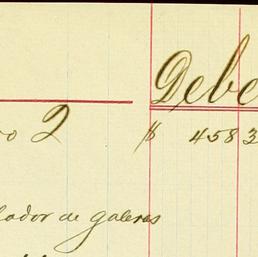 Debe
2 $ 4583
ador de galeras